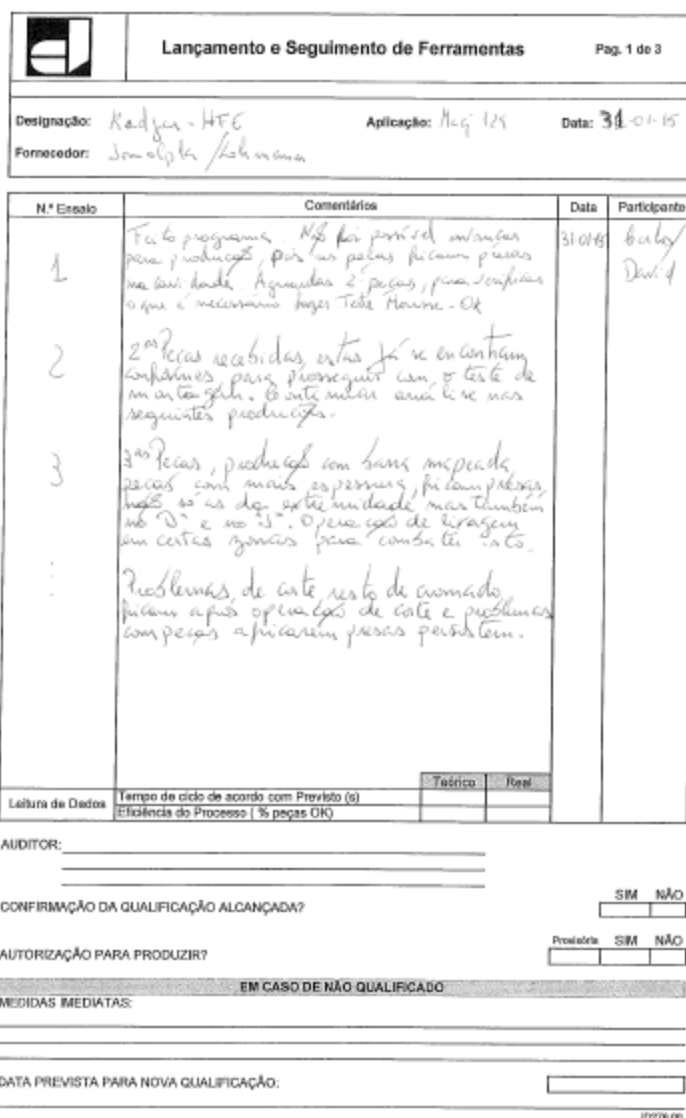 Lançamento e Seguimento de Ferramentas
Pag. 1 de 3
Designação: Kadjar - HFE
Aplicação: Maq 129
Data: 31-01-15
Fornecedor:
N.º Ensaio
Comentários
Data
Participante
1
Feito programa. Não foi possível avançar
31-01-15
para produção, pois as peças ficam presas
David
na cavidade. Aguardar 2ªs peças, para verificar
o que é necessário fazer. Teste Mousse - OK
2
2ªs Peças recebidas, estas já se encontram
conformes para prosseguir com o teste de
montagem. Continuar análise nas
seguintes produções.
3
3ªs Peças, produção com barra mapeada,
peças com mais espessura, ficam presas,
não só as da extremidade mas também
no "D" e no "J". Operação de lixagem
em certas zonas para combater isto.
Problemas de corte, resto de cromado,
ficam após operação de corte e problemas
com peças a ficarem presas persistem.
Teórico
Real
Leitura de Dados
Tempo de ciclo de acordo com Previsto (s)
Eficiência do Processo ( % peças OK)
AUDITOR:
SIM NÃO
CONFIRMAÇÃO DA QUALIFICAÇÃO ALCANÇADA?
Provisória SIM NÃO
AUTORIZAÇÃO PARA PRODUZIR?
EM CASO DE NÃO QUALIFICADO
MEDIDAS IMEDIATAS:
DATA PREVISTA PARA NOVA QUALIFICAÇÃO: